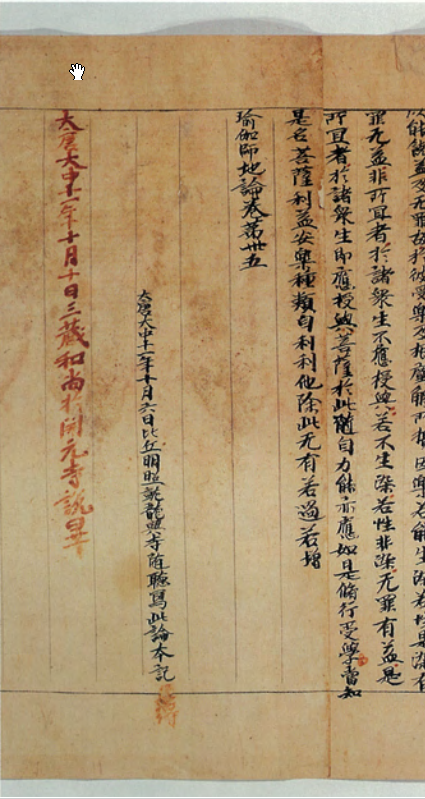 因樂若能生染若性是染有
罪无益非所宜者於諸衆生不應授與若不生染若性非染无罪有益是
所宜者於諸衆生即應授與菩薩於此隨自力能亦應如是脩行受學當知
是名菩薩利益安樂種類自利利他除此无有若過若增
瑜伽師地論卷第卅五
大唐大中十一年十月六日比丘明照就龍興寺隨聽寫此論本記
大唐大中十一年十月十日三藏和尚於開元寺說畢